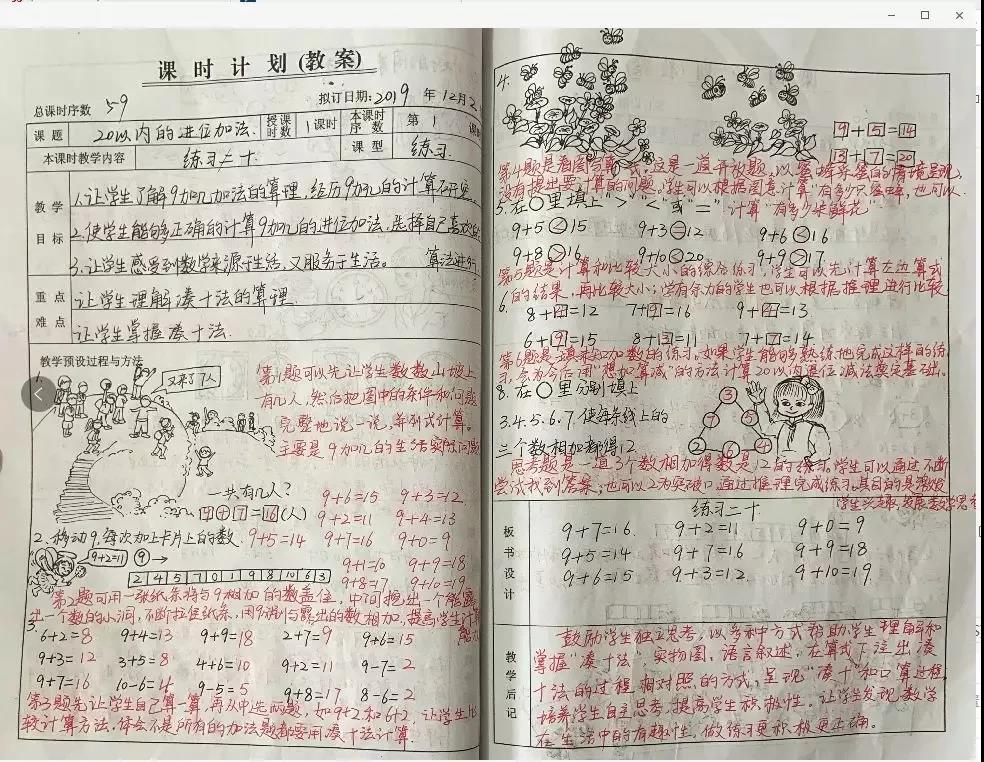 课时计划(教案)
总课时序数 59
拟订日期:2019 年 12月2
课题 20以内的进位加法. 授课时数 1课时 本课时序数 第 1 课时
本课时教学内容 练习二十. 课型 练习.
教学目标
1.让学生了解9加几加法的算理,经历9加几的计算
2.使学生能够正确的计算9加几的进位加法,选择自己喜欢的
3.让学生感受到数学来源于生活,又服务于生活。 算法进行
重点 让学生理解凑十法的算理.
难点 让学生掌握凑十法.
教学预设过程与方法
1.
又来了7人
第1题可以先让学生数数山坡上
有几人,然后把图中的条件和问题
完整地说一说,并列式计算。
主要是9加几的生活实际问题
一共有几人?
9+7=16(人)
9+6=15 9+3=12
9+2=11 9+4=13
2.移动9,每次加上卡片上的数.
9+5=14 9+7=16 9+0=9
9+2=11 9→
9+1=10 9+9=18
2 4 5 7 0 1 9 8 10 6 3
9+8=17 9+10=19
第2题可用一张纸条将与9相加的数盖住,中间挖出一个能露
出一个数的小洞,不断拉住纸条,用9就与露出的数相加,提高学生计算
能力
3.
6+2=8 9+4=13 9+9=18 2+7=9 9+6=15
9+3=12 3+5=8 4+6=10 9+2=11 9-7=2
9+7=16 10-6=4 9-5=5 9+8=17 8-6=2
第3题先让学生自己算一算,再从中选两题,如9+2和6+2,让学生比
较计算方法,体会不是所有的加法题都要用凑十法计算.
4.
9+5=14
13+7=20
第4题是看图写算式,这是一道开放题,以蜜蜂采蜜的情境呈现,
没有提出要计算的问题,学生可以根据图意计算"有多少只蜜蜂,也可以
计算"有多少朵鲜花"
5.在○里填上">""<"或"="
9+5<15 9+3=12 9+6<16
9+8>16 9+10<20 9+9>17
第5题是计算和比较大小的综合练习,学生可以先计算左边算式
的结果,再比较大小;学有余力的学生也可以根据推理进行比较
6.
8+4=12 7+9=16 9+4=13
6+9=15 8+3=11 7+7=14
第6题是填未知加数的练习。如果学生能够熟练地完成这样的练
习,会为今后用"想加算减"的方法计算20以内退位减法奠定基础.
8.在○里分别填上
3.4.5.6.7.使每条线上的
三个数相加都得12
3
7 5
2 6 4
思考题是一道3个数相加得数是12的练习,学生可以通过不断
尝试找到答案;也可以2为突破口,通过推理完成练习,其目的是激发
学生兴趣,发展数学思考
板书设计
练习二十
9+7=16. 9+2=11 9+0=9
9+5=14 9+7=16 9+9=18
9+6=15 9+3=12. 9+10=19.
教学后记
鼓励学生独立思考,以多种方式帮助学生理解和
掌握"凑十法"实物图、语言叙述、在算式下注出凑
十法的过程相对照的方式,呈现"凑十"和口算过程,
培养学生自主思考,提高学生积极性。让学生发现数学
在生活中的有趣性,做练习更积极更正确。